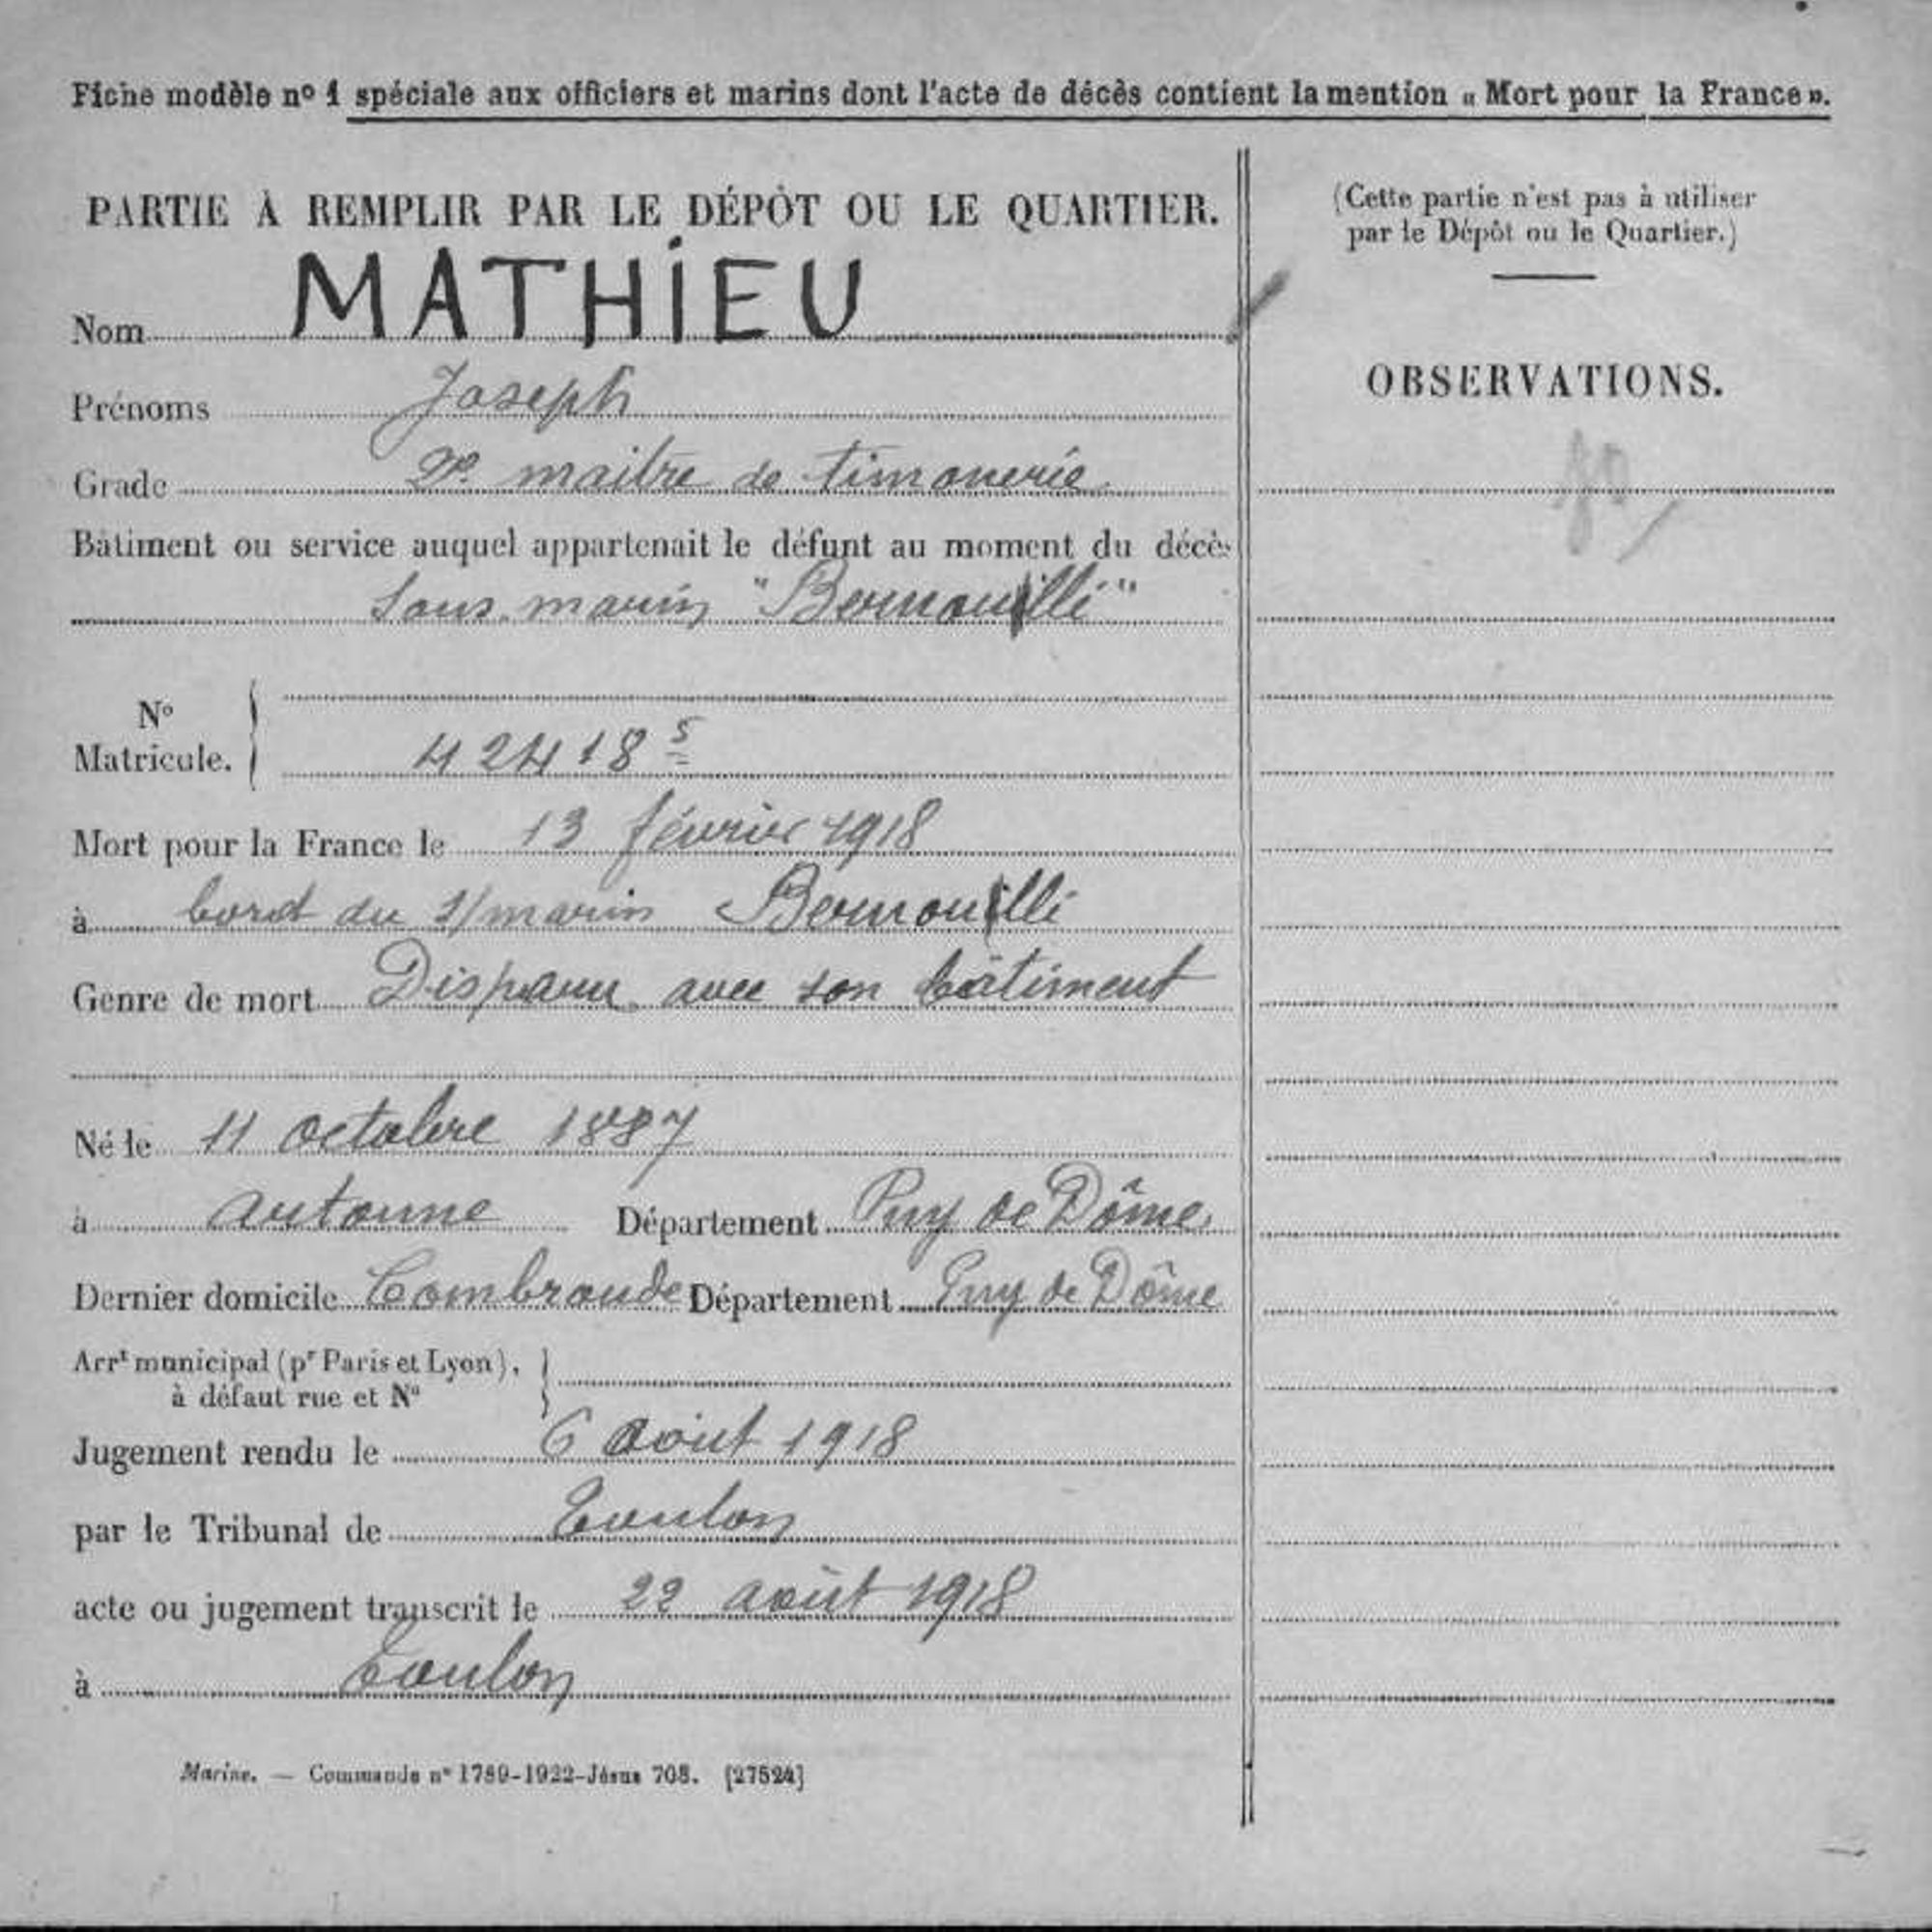 Fiche modèle nº 1 spéciale aux officiers et marins dont l'acte de décès contient la mention « Mort pour la France ».
PARTIE À REMPLIR PAR LE DÉPÔT OU LE QUARTIER.
Nom MATHIEU
Prénoms Joseph
Grade 2e maitre de timonerie
Bâtiment ou service auquel appartenait le défunt au moment du décès
Sous-marin "Bernouilli"
Nº
Matricule. 42418 S
Mort pour la France le 13 février 1918
à bord du s/marin Bernouilli
Genre de mort Disparu avec son bâtiment
Né le 11 octobre 1887
à Autonne Département Puy de Dôme
Dernier domicile Combronde Département Puy de Dôme
Arrt municipal (pr Paris et Lyon),
à défaut rue et Nº
Jugement rendu le 6 Août 1918
par le Tribunal de Toulon
acte ou jugement transcrit le 22 août 1918
à Toulon
Marine. — Commande nº 1789-1922-Jésus 708. [27524]
(Cette partie n'est pas à utiliser
par le Dépôt ou le Quartier.)
OBSERVATIONS.